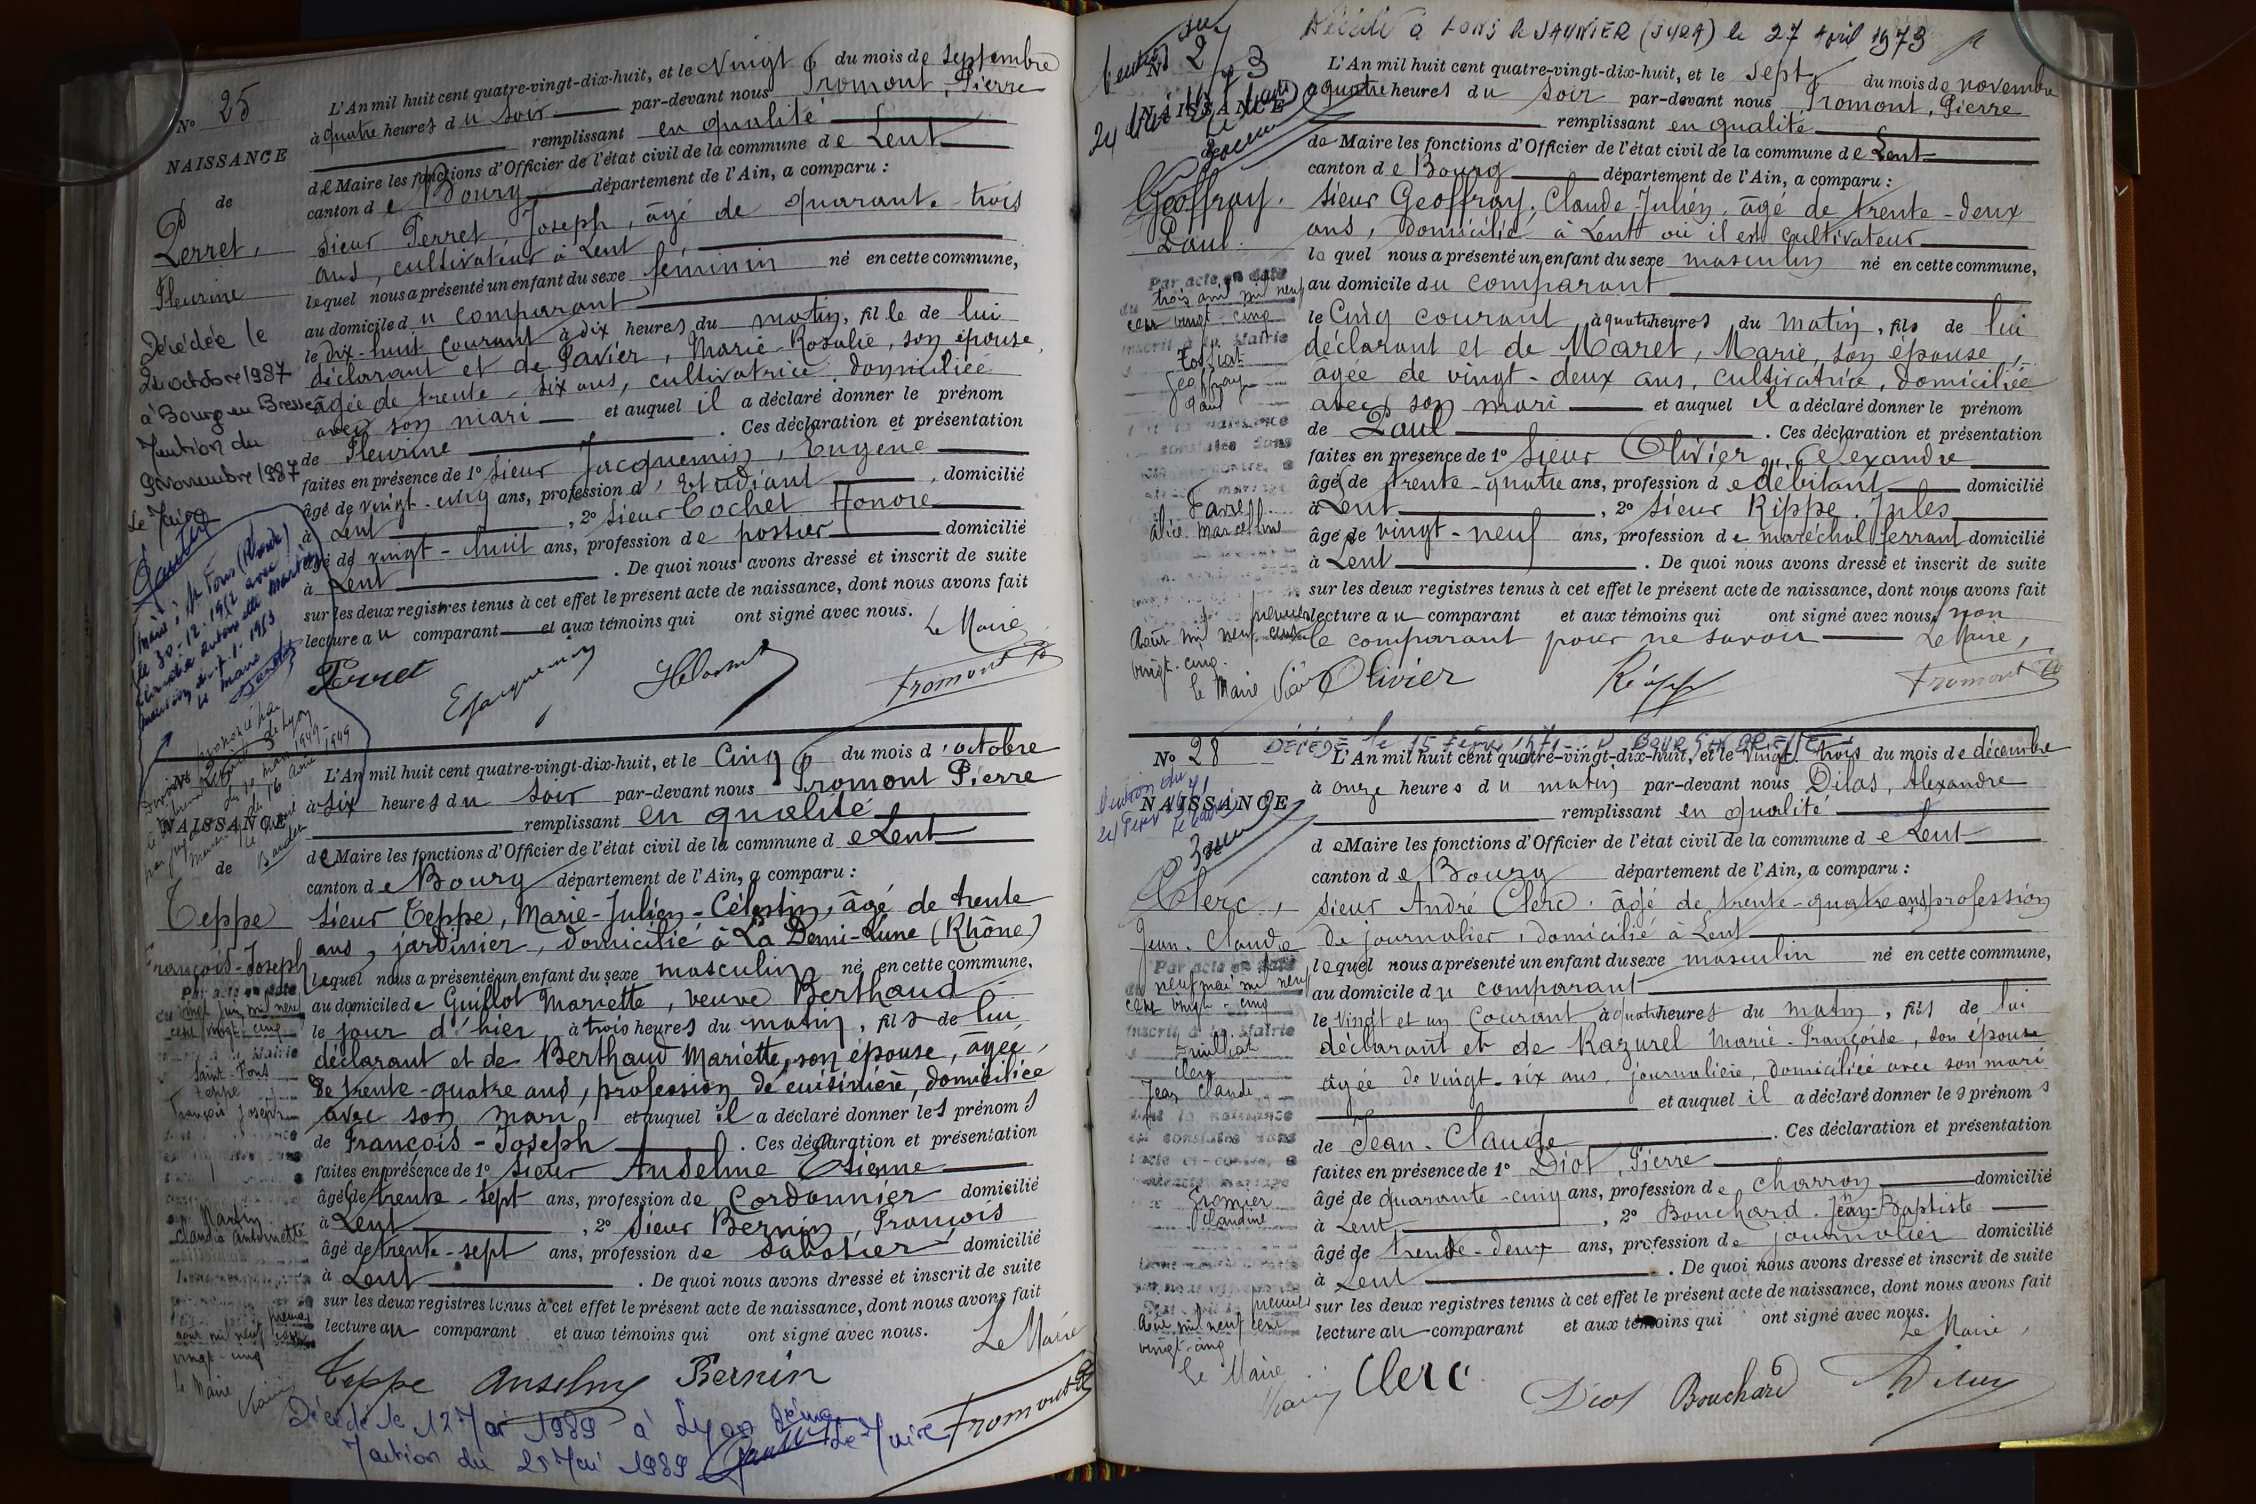 No 25
NAISSANCE
de
Perret,
Fleurine
Décédée le
à Bourg en Bresse
Mention du
9 novembre 1987
Le Maire
L'An mil huit cent quatre-vingt-dix-huit, et le Vingt du mois de septembre
à quatre heures du soir par-devant nous Fromont, Pierre
remplissant en qualité
de Maire les fonctions d'Officier de l'état civil de la commune de Lent
canton de Bourg département de l'Ain, a comparu :
sieur Perret Joseph, âgé de quarante-trois
ans, cultivateur à Lent,
lequel nous a présenté un enfant du sexe féminin né en cette commune,
au domicile du comparant
le dix-huit courant à dix heures du matin, fille de lui
déclarant et de Pavier, Marie-Rosalie, son épouse,
âgée de trente-six ans, cultivatrice, domiciliée
avec son mari et auquel il a déclaré donner le prénom
de Fleurine . Ces déclaration et présentation
faites en présence de 1° sieur Jacquemin, Eugène
âgé de vingt-cinq ans, profession d'étudiant, domicilié
à Lent, 2° sieur Cochet Honoré
âgé de vingt-huit ans, profession de postier domicilié
à Lent . De quoi nous avons dressé et inscrit de suite
sur les deux registres tenus à cet effet le présent acte de naissance, dont nous avons fait
lecture au comparant et aux témoins qui ont signé avec nous. Le Maire
Perret EJacquemin Fromont
NAISSANCE
de
Teppe
François-Joseph
Saint-Fons
Teppe
François Joseph
Martin
Claudia Antoinette
premier
août mil neuf cent
vingt-cinq
Le Maire
L'An mil huit cent quatre-vingt-dix-huit, et le Cinq du mois d'octobre
à six heures du soir par-devant nous Fromont Pierre
remplissant en qualité
de Maire les fonctions d'Officier de l'état civil de la commune de Lent
canton de Bourg département de l'Ain, a comparu :
sieur Teppe, Marie-Julien-Célestin, âgé de trente
ans, jardinier, domicilié à La Demi-Lune (Rhône)
lequel nous a présenté un enfant du sexe masculin né en cette commune,
au domicile de Guillot Mariette, veuve Berthaud
le jour d'hier à trois heures du matin, fils de lui
déclarant et de Berthaud Mariette, son épouse, âgée
de trente-quatre ans, profession de cuisinière, domiciliée
avec son mari et auquel il a déclaré donner les prénoms
de François-Joseph . Ces déclaration et présentation
faites en présence de 1° sieur Anselme Etienne
âgé de trente-sept ans, profession de Cordonnier domicilié
à Lent, 2° sieur Bernin, François
âgé de trente-sept ans, profession de sabotier domicilié
à Lent . De quoi nous avons dressé et inscrit de suite
sur les deux registres tenus à cet effet le présent acte de naissance, dont nous avons fait
lecture au comparant et aux témoins qui ont signé avec nous.
Le Maire
Teppe Anselme Bernin Fromont
Décédé le 12 Mai 1989 à Lyon
Mention du 25 Mai 1989 Le Maire
Décédé à LONS le SAUNIER (JURA) le 27 Avril 1973
NAISSANCE
Geoffray.
Paul.
Par acte en date
du trois avril mil neuf
cent vingt-cinq
inscrit à la Mairie
Tossiat
Geoffray
Paul
Favre
Alice Marcelline
premier
août mil neuf cent
vingt-cinq.
Le Maire
L'An mil huit cent quatre-vingt-dix-huit, et le sept du mois de novembre
à quatre heures du soir par-devant nous Fromont, Pierre
remplissant en qualité
de Maire les fonctions d'Officier de l'état civil de la commune de Lent
canton de Bourg département de l'Ain, a comparu :
sieur Geoffray, Claude-Julien, âgé de trente-deux
ans, domicilié à Lent où il est cultivateur
lequel nous a présenté un enfant du sexe masculin né en cette commune,
au domicile du comparant
le Cinq courant à quatre heures du matin, fils de lui
déclarant et de Maret, Marie, son épouse,
âgée de vingt-deux ans, cultivatrice, domiciliée
avec son mari et auquel il a déclaré donner le prénom
de Paul . Ces déclaration et présentation
faites en présence de 1° sieur Olivier Alexandre
âgé de trente-quatre ans, profession de débitant domicilié
à Lent, 2° sieur Rippe Jules
âgé de vingt-neuf ans, profession de maréchal ferrant domicilié
à Lent . De quoi nous avons dressé et inscrit de suite
sur les deux registres tenus à cet effet le présent acte de naissance, dont nous avons fait
lecture au comparant et aux témoins qui ont signé avec nous, non
le comparant pour ne savoir Le Maire,
Olivier Rippe Fromont
No 28
NAISSANCE
Clerc,
Jean-Claude
Par acte en date
du neuf mai mil neuf
cent vingt-cinq
inscrit à la Mairie
Clerc
Jean Claude
Claudine
premier
août mil neuf cent
vingt-cinq
Le Maire
L'An mil huit cent quatre-vingt-dix-huit, et le vingt-trois du mois de décembre
à onze heures du matin par-devant nous Dilas, Alexandre
remplissant en qualité
de Maire les fonctions d'Officier de l'état civil de la commune de Lent
canton de Bourg département de l'Ain, a comparu :
sieur André Clerc, âgé de trente-quatre ans, profession
de journalier, domicilié à Lent
lequel nous a présenté un enfant du sexe masculin né en cette commune,
au domicile du comparant
le vingt et un courant à quatre heures du matin, fils de lui
déclarant et de Razurel Marie-Françoise, son épouse
âgée de vingt-six ans, journalière, domiciliée avec son mari
et auquel il a déclaré donner les prénoms
de Jean-Claude . Ces déclaration et présentation
faites en présence de 1° Diot, Pierre
âgé de quarante-cinq ans, profession de charron domicilié
à Lent, 2° Bouchard Jean-Baptiste
âgé de trente-deux ans, profession de journalier domicilié
à Lent . De quoi nous avons dressé et inscrit de suite
sur les deux registres tenus à cet effet le présent acte de naissance, dont nous avons fait
lecture au comparant et aux témoins qui ont signé avec nous.
Le Maire,
Clerc Diot Bouchard